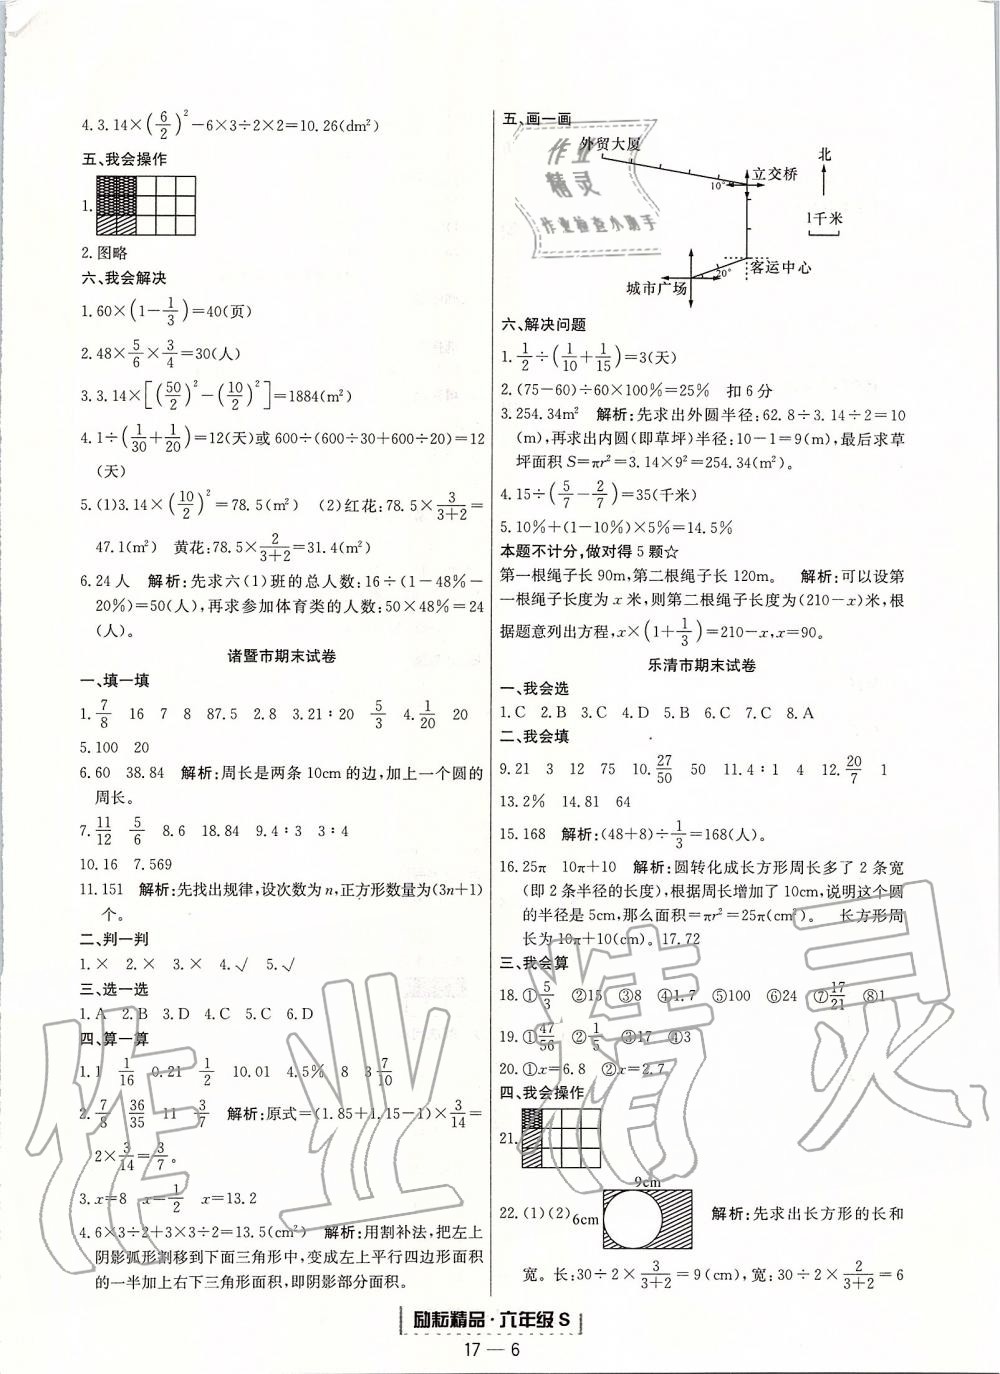 4.3.14×(6/2)²-6×3÷2×2=10.26(dm²)
五、我会操作
1.
2.图略
六、我会解决
1.60×(1-1/3)=40(页)
2.48×5/6×3/4=30(人)
3.3.14×[(50/2)²-(10/2)²]=1884(m²)
4.1÷(1/30+1/20)=12(天)或600÷(600÷30+600÷20)=12
(天)
5.(1)3.14×(10/2)²=78.5(m²) (2)红花:78.5×3/(3+2)=
47.1(m²) 黄花:78.5×2/(3+2)=31.4(m²)
6.24人 解析:先求六(1)班的总人数:16÷(1-48%-
20%)=50(人),再求参加体育类的人数:50×48%=24
(人)。
诸暨市期末试卷
一、填一填
1.7/8 16 7 8 87.5 2.8 3.21∶20 5/3 4.1/20 20
5.100 20
6.60 38.84 解析:周长是两条10cm的边,加上一个圆的
周长。
7.11/12 5/6 8.6 18.84 9.4∶3 3∶4
10.16 7.569
11.151 解析:先找出规律,设次数为n,正方形数量为(3n+1)
个。
二、判一判
1.× 2.× 3.× 4.√ 5.√
三、选一选
1.A 2.B 3.D 4.C 5.C 6.D
四、算一算
1.1 1/16 0.21 1/2 10.01 4.5% 8 3 7/10
2.7/8 36/35 11 3/7 解析:原式=(1.85+1.15-1)×3/14=
2×3/14=3/7。
3.x=8 x=1/2 x=13.2
4.6×3÷2+3×3÷2=13.5(cm²) 解析:用割补法,把左上
阴影弧形割移到下面三角形中,变成左上平行四边形面积
的一半加上右下三角形面积,即阴影部分面积。
五、画一画
外贸大厦
北
立交桥
10°
1千米
客运中心
20°
城市广场
作业
精灵
作业检查小助手
六、解决问题
1.1/2÷(1/10+1/15)=3(天)
2.(75-60)÷60×100%=25% 扣6分
3.254.34m² 解析:先求出外圆半径:62.8÷3.14÷2=10
(m),再求出内圆(即草坪)半径:10-1=9(m),最后求草
坪面积S=πr²=3.14×9²=254.34(m²)。
4.15÷(5/7-2/7)=35(千米)
5.10%+(1-10%)×5%=14.5%
本题不计分,做对得5颗☆
第一根绳子长90m,第二根绳子长120m。 解析:可以设第
一根绳子长度为x米,则第二根绳子长度为(210-x)米,根
据题意列出方程,x×(1+1/3)=210-x,x=90。
乐清市期末试卷
一、我会选
1.C 2.B 3.C 4.D 5.B 6.C 7.C 8.A
二、我会填
9.21 3 12 75 10.27/50 50 11.4∶1 4 12.20/7 1
13.2% 14.81 64
15.168 解析:(48+8)÷1/3=168(人)。
16.25π 10π+10 解析:圆转化成长方形周长多了2条宽
(即2条半径的长度),根据周长增加了10cm,说明这个圆
的半径是5cm,那么面积=πr²=25π(cm²)。 长方形周
长为10π+10(cm)。17.72
三、我会算
18.①5/3 ②15 ③8 ④1.7 ⑤100 ⑥24 ⑦17/21 ⑧1
19.①47/56 ②1/5 ③17 ④3
20.①x=6.8 ②x=2.7
四、我会操作
21.
9cm
22.(1)(2) 6cm 解析:先求出长方形的长和
宽。长:30÷2×3/(3+2)=9(cm),宽:30÷2×2/(3+2)=6
作业精灵
励耘精品·六年级S
17—6